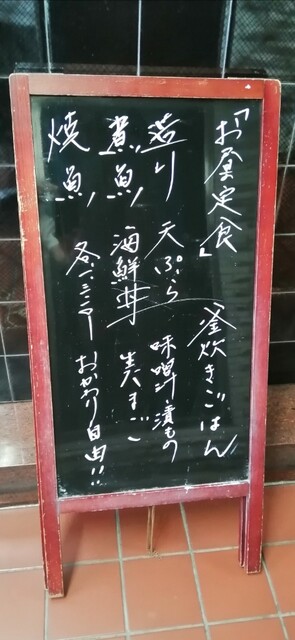 「お昼定食」
(釜炊きごはん
造り 天ぷら
味噌汁 漬もの
煮魚 海鮮丼
焼魚
おかわり自由!!